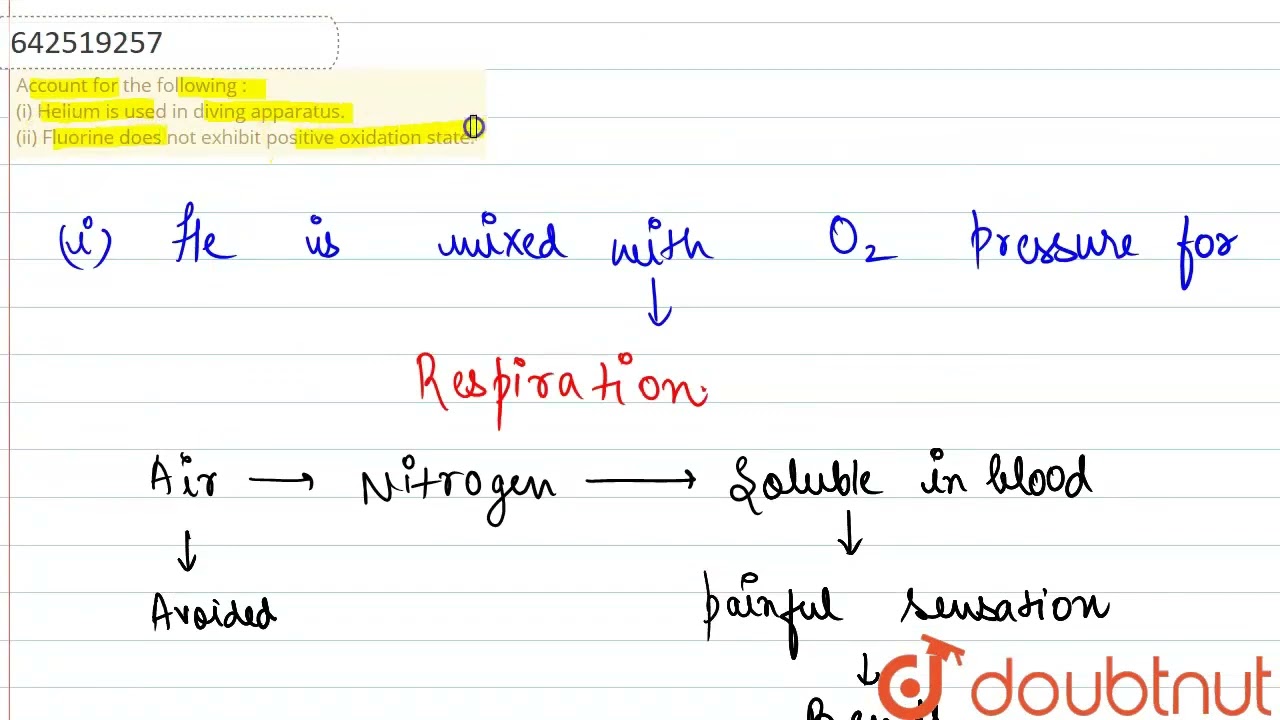 642519257
Account for the following :
(i) Helium is used in diving apparatus.
(ii) Fluorine does not exhibit positive oxidation state.
(i) He is mixed with O2 pressure for
↓
Respiration.
Air → Nitrogen → Soluble in blood
↓ ↓
Avoided painful sensation
↓
doubtnut